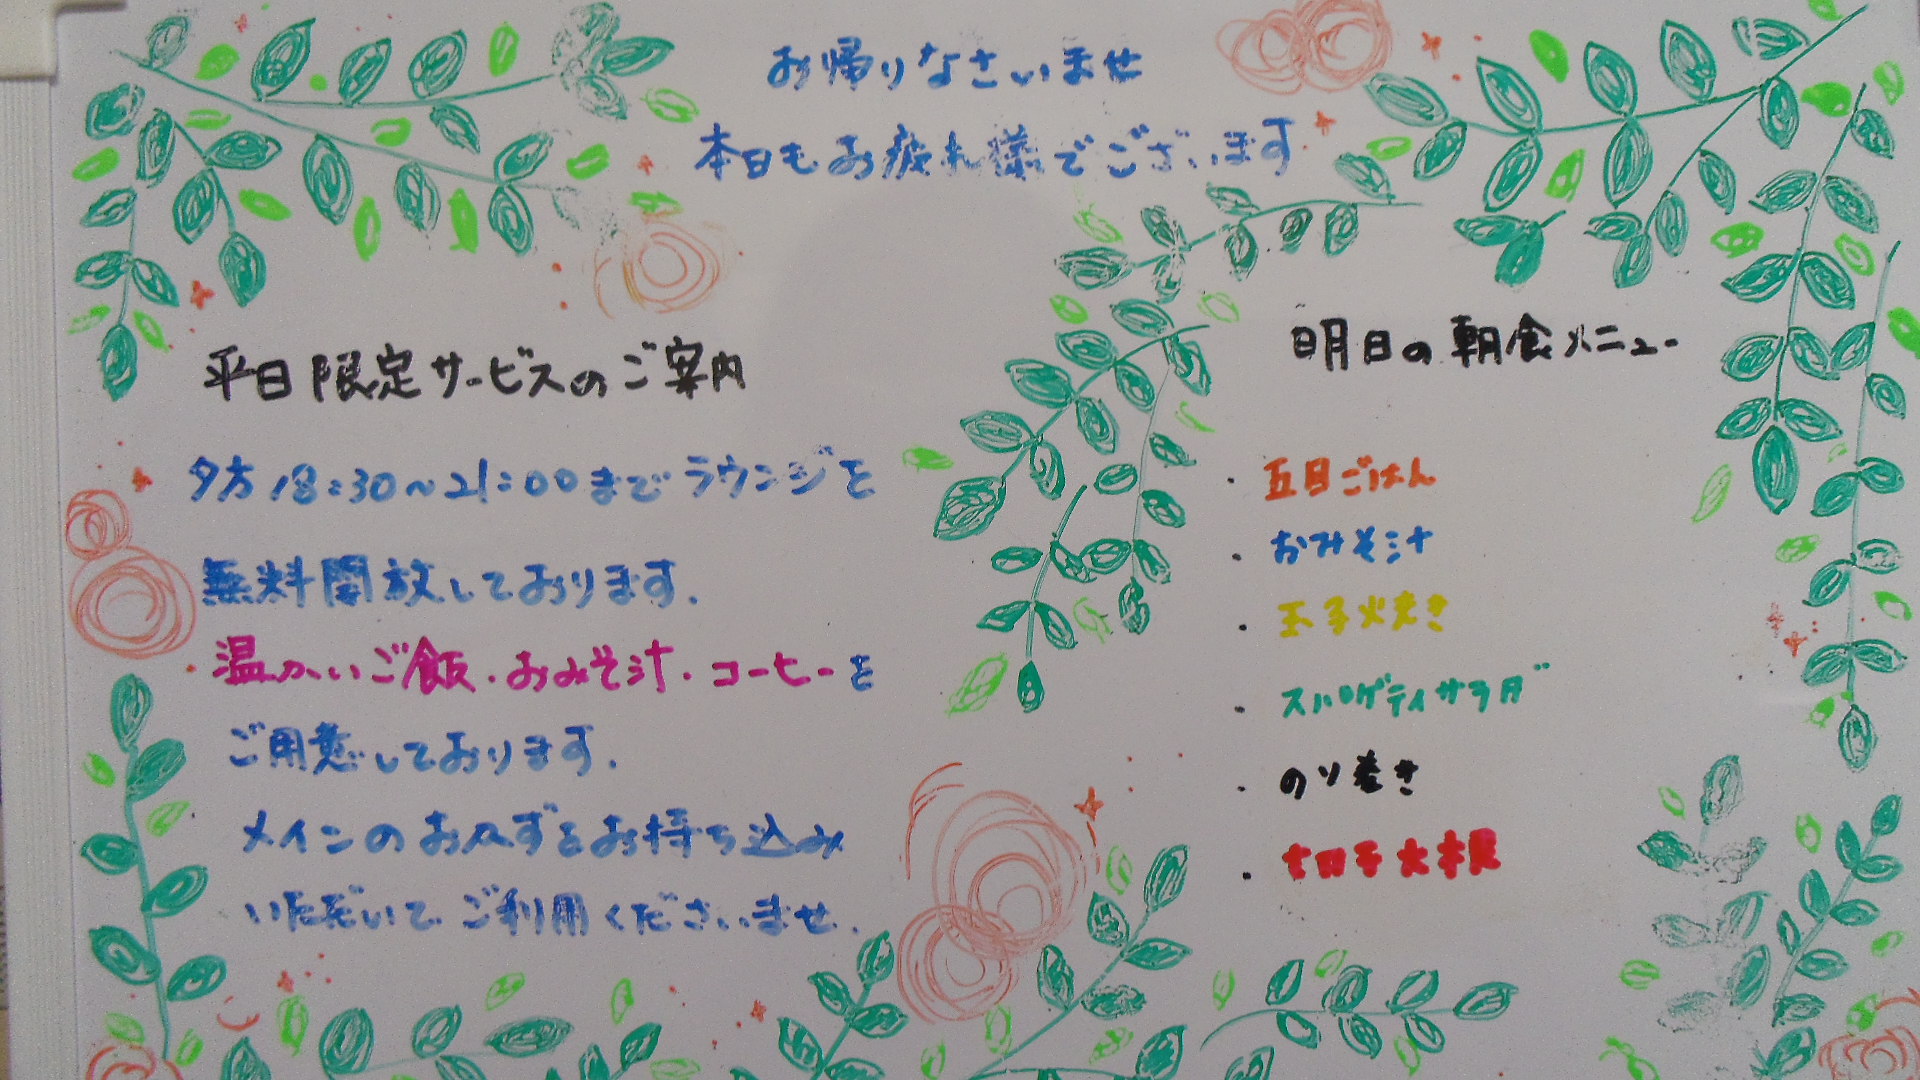 お帰りなさいませ
本日もお疲れ様でございます
平日限定サービスのご案内
夕方18:30~21:00までラウンジを
無料開放しております.
温かいご飯.おみそ汁.コーヒーを
ご用意しております.
メインのおかずをお持ち込み
いただいてご利用くださいませ.
明日の朝食メニュー
・五目ごはん
・おみそ汁
・玉子火焼き
・スパゲティサラダ
・のり巻き
・切干大根